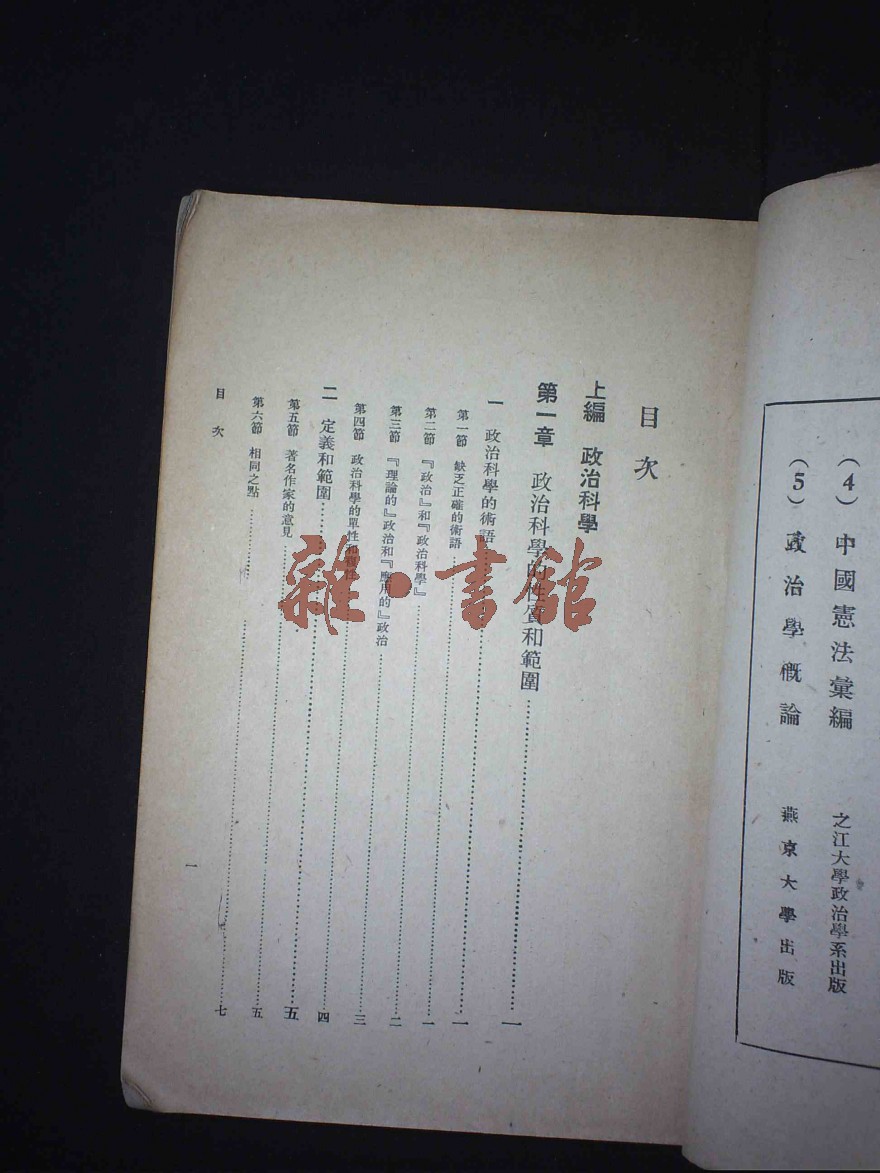 (4) 中國憲法彙編 之江大學政治學系出版
(5) 政治學概論 燕京大學出版
目次
上編 政治科學
第一章 政治科學的性質和範圍……一
一 政治科學的術語……一
第一節 缺乏正確的術語……一
第二節 『政治』和『政治科學』……二
第三節 『理論的』政治和『應用的』政治……三
第四節 政治科學的單性和……四
二 定義和範圍……五
第五節 著名作家的意見……五
第六節 相同之點……七
目次
一
雜·書館